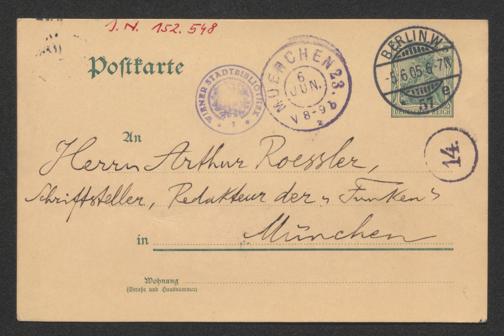 I. N. 152.548
Postkarte
WIENER STADTBIBLIOTHEK
MUENCHEN 23.
6
JUN.
V 8-9
BERLIN W
-5.6.05.6-7N
57
14.
An
Herrn Arthur Roessler,
Schriftsteller, Redakteur der „Funken“
in München
Wohnung
(Straße und Hausnummer)